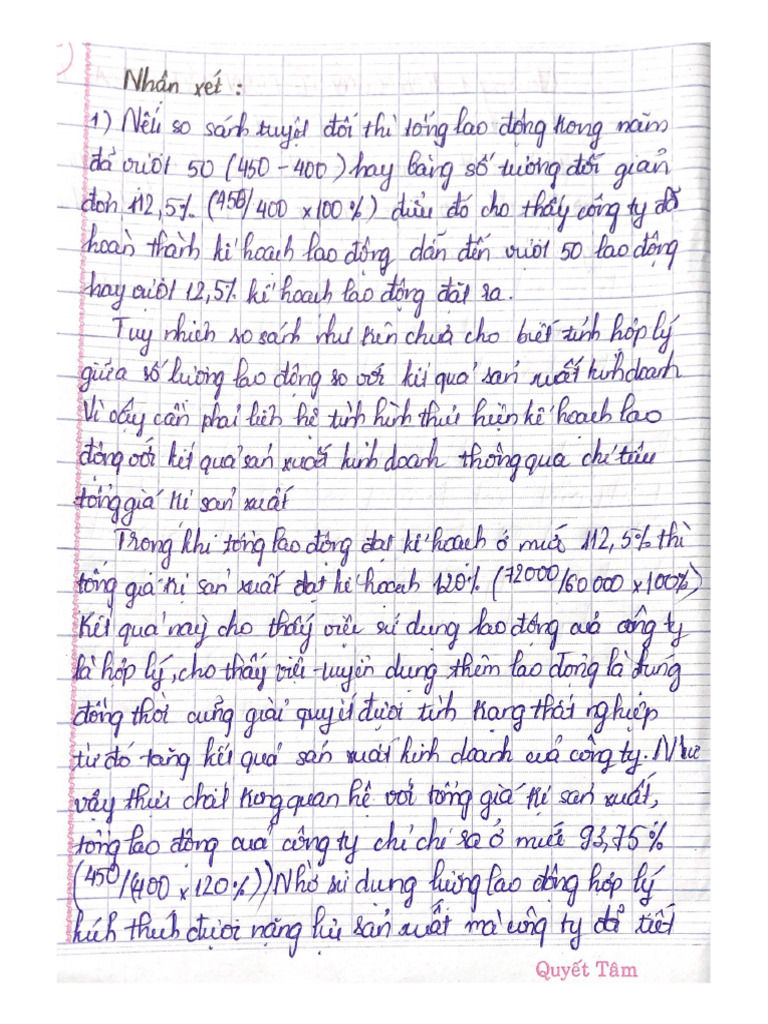 Nhận xét :
1) Nếu so sánh tuyệt đối thì tổng lao động trong năm
đã vượt 50 (450 - 400) hay bằng số tương đối giản
đơn 112,5% (450/400 x 100%) điều đó cho thấy công ty đã
hoàn thành kế hoạch lao động dẫn đến vượt 50 lao động
hay vượt 12,5% kế hoạch lao động đặt ra.
Tuy nhiên so sánh như trên chưa cho biết tính hợp lý
giữa số lượng lao động so với kết quả sản xuất kinh doanh
Vì vậy cần phải liên hệ tình hình thực hiện kế hoạch lao
động với kết quả sản xuất kinh doanh thông qua chỉ tiêu
tổng giá trị sản xuất
Trong khi tổng lao động đạt kế hoạch ở mức 112,5% thì
tổng giá trị sản xuất đạt kế hoạch 120% (72000/60000 x 100%)
Kết quả này cho thấy việc sử dụng lao động của công ty
là hợp lý, cho thấy việc tuyển dụng thêm lao động là đúng
đồng thời cũng giải quyết được tình trạng thất nghiệp
từ đó tăng kết quả sản xuất kinh doanh của công ty. Như
vậy thực chất trong quan hệ với tổng giá trị sản xuất,
tổng lao động của công ty chỉ chi ra ở mức 93,75%
(450/(400 x 120%)) Nhờ sử dụng lượng lao động hợp lý
kích thích được năng lực sản xuất mà công ty đã tiết
Quyết Tâm